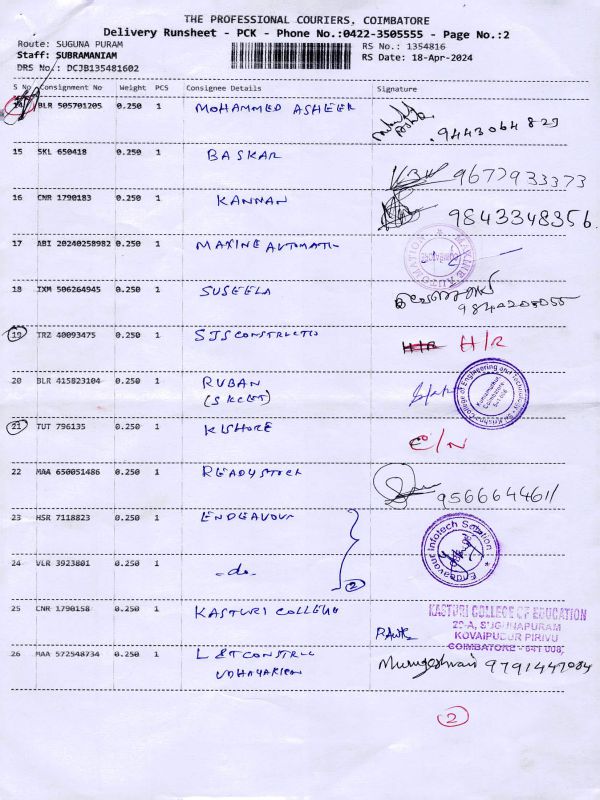 THE PROFESSIONAL COURIERS, COIMBATORE
Delivery Runsheet - PCK - Phone No.:0422-3505555 - Page No.:2
Route: SUGUNA PURAM RS No.: 1354816
Staff: SUBRAMANIAM RS Date: 18-Apr-2024
DRS No.: DCJB135481602
S No Consignment No Weight PCS Consignee Details Signature
BLR 505701205 0.250 1 MOHAMMED ASHEER 9443064829
15 SKL 650418 0.250 1 BASKAR 9677933373
16 CNR 1790183 0.250 1 KANNAN 9843348356
17 ABI 20240258982 0.250 1 MAXINE AUTOMATI MAXINE AUTOMATION
18 IXM 506264945 0.250 1 SUSEELA
19 TRZ 40093475 0.250 1 SJS CONSTRUCTIO H/R H/R
20 BLR 415823104 0.250 1 RUBAN
(SKCET) Sri Krishna College of Engineering and Technology Kuniamuthur Coimbatore
21 TUT 796135 0.250 1 KISHORE C/N
22 MAA 650051486 0.250 1 READYSTOCK 9566644611
23 HSR 7118823 0.250 1 ENDEAVOUR Endeavour Infotech Solution
24 VLR 3923801 0.250 1 -do- 2
25 CNR 1790158 0.250 1 KASTURI COLLEGE KASTURI COLLEGE OF EDUCATION
29-A, SUGUNAPURAM
KOVAIPUDUR PIRIVU
COIMBATORE - 641 008.
26 MAA 572548734 0.250 1 L & T CONSTRUC Murugeshwari 9791447084
UDHAYAKUM
2